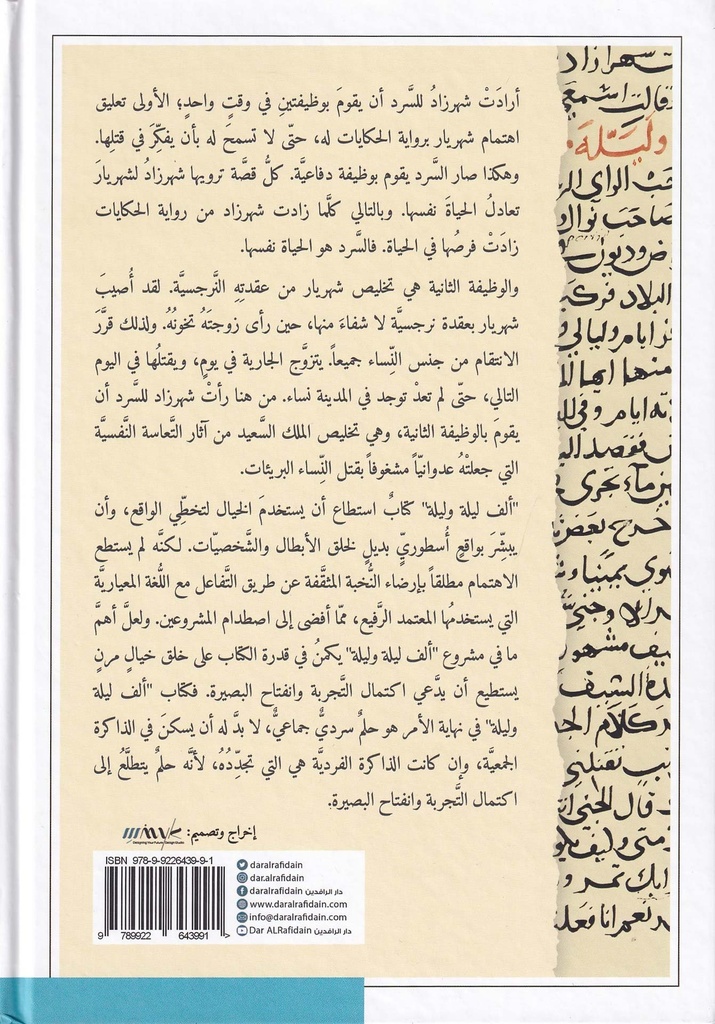 أرادَتْ شهرزادُ للسَّرد أن يقومَ بوظيفتينِ في وقتٍ واحدٍ؛ الأولى تعليق
اهتمام شهريار برواية الحكايات له، حتّى لا تسمحَ له بأن يفكِّرَ في قتلِها.
وهكذا صار السَّرد يقوم بوظيفة دفاعيَّة. كلُّ قصَّة ترويها شهرزادُ لشهريارَ
تعادلُ الحياةَ نفسها. وبالتالي كلَّما زادت شهرزاد من رواية الحكايات
زادَتْ فرصُها في الحياة. فالسَّرد هو الحياة نفسها.
والوظيفة الثانية هي تخليص شهريار من عقدتِهِ النَّرجسيَّة. لقد أُصيبَ
شهريار بعقدة نرجسيَّة لا شفاءَ منها، حين رأى زوجتَهُ تخونُهُ. ولذلك قرَّرَ
الانتقام من جنس النِّساء جميعاً. يتزوَّج الجارية في يومٍ، ويقتلُها في اليوم
التالي، حتّى لم تعدْ توجد في المدينة نساء. من هنا رأتْ شهرزاد للسَّرد أن
يقومَ بالوظيفة الثانية، وهي تخليص الملك السَّعيد من آثار التَّعاسة النَّفسيَّة
التي جعلتْهُ عدوانيّاً مشغوفاً بقتل النِّساء البريئات.
"ألف ليلة وليلة" كتابٌ استطاع أن يستخدمَ الخيال لتخطِّي الواقع، وأن
يبشِّرَ بواقعٍ أُسطوريٍّ بديلٍ لخلق الأبطال والشَّخصيّات. لكنَّه لم يستطع
الاهتمام مطلقاً بإرضاء النُّخبة المثقَّفة عن طريق التَّفاعل مع اللُّغة المعياريَّة
التي يستخدمُها المعتمد الرَّفيع، ممّا أفضى إلى اصطدام المشروعين. ولعلَّ أهمَّ
ما في مشروع "ألف ليلة وليلة" يكمنُ في قدرة الكتاب على خلق خيالٍ مرنٍ
يستطيع أن يدَّعي اكتمال التَّجربة وانفتاح البصيرة. فكتاب "ألف ليلة
وليلة" في نهاية الأمر هو حلمٌ سرديٌّ جماعيٌّ، لا بدَّ له أن يسكنَ في الذاكرة
الجمعيَّة، وإن كانت الذاكرة الفرديَّة هي التي تجدِّدُهُ، لأنَّه حلمٌ يتطلَّعُ إلى
اكتمال التَّجربة وانفتاح البصيرة.
إخراج وتصميم:
Designing Your Future Design Studio
ISBN 978-9-9226439-9-1
9 789922 643991 >
daralrafidain
dar.alrafidain
daralrafidain دار الرافدين
www.daralrafidain.com
info@daralrafidain.com
Dar ALRafidain دار الرافدين
وليلة
البلاد
ايام وليالي
ايام وفي
نجرى
مشهور
كلام
قال الجني